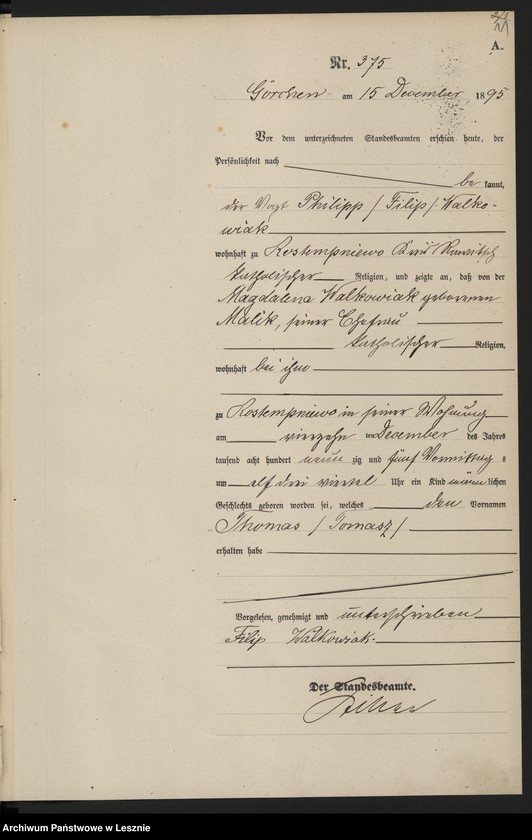 A.
Nr. 375
Görchen am 15 December 1895
Vor dem unterzeichneten Standesbeamten erschien heute, der
Persönlichkeit nach
bekannt,
der Vogt Philipp / Filip / Walko-
wiak
wohnhaft zu Rostempniewo Rawitsch
katholischer Religion, und zeigte an, daß von der
Magdalena Walkowiak geborenen
Malik, seiner Ehefrau
katholischer Religion,
wohnhaft bei ihm
zu Rostempniewo in seiner Wohnung
am vierzehn ten December des Jahres
tausend acht hundert neunzig und fünf Vormittags
um elf drei viertel Uhr ein Kind männlichen
Geschlechts geboren worden sei, welches den Vornamen
Thomas / Tomasz /
erhalten habe
Vorgelesen, genehmigt und unterschrieben
Filip Walkowiak.
Der Standesbeamte.
Archiwum Państwowe w Lesznie